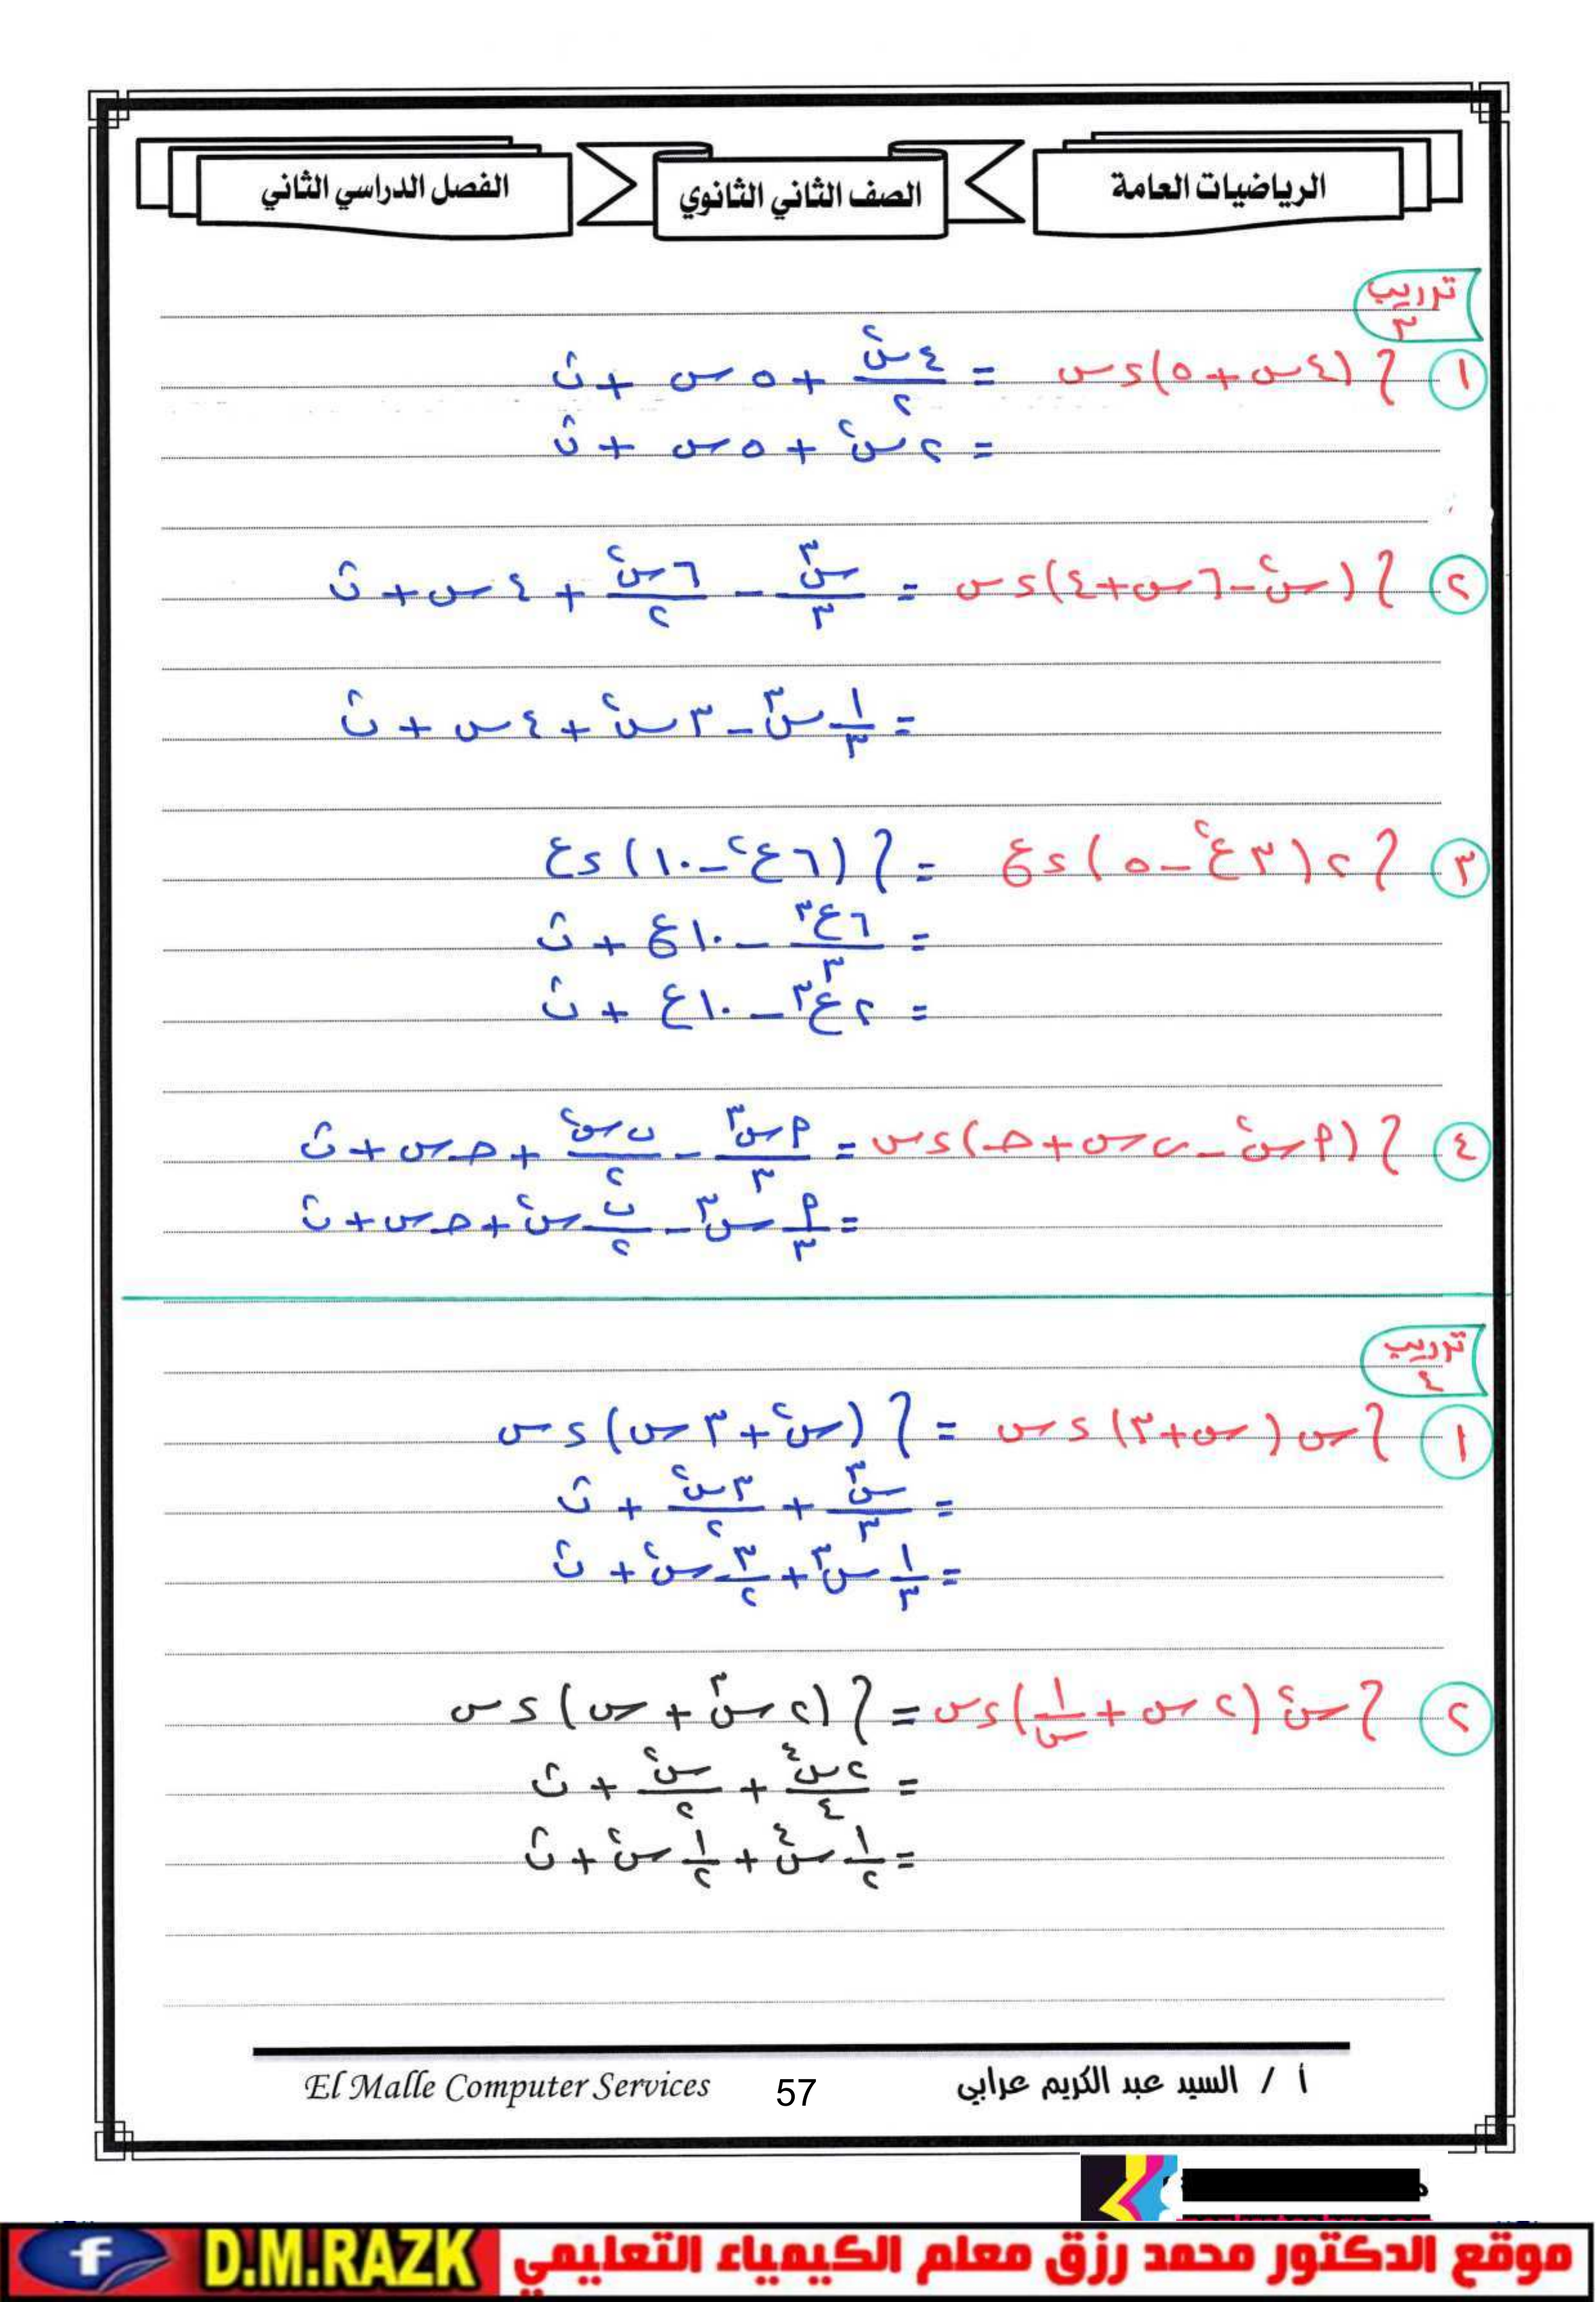 الرياضيات العامة
الصف الثاني الثانوي
الفصل الدراسي الثاني
تدريب ٣
١ ∫ (٤س + ٥) ءس = ٤س^٢/٢ + ٥س + ث
= ٢س^٢ + ٥س + ث
٢ ∫ (س^٢ - ٦س + ٤) ءس = س^٣/٣ - ٦س^٢/٢ + ٤س + ث
= ١/٣ س^٣ - ٣س^٢ + ٤س + ث
٣ ∫ ٢(٣ع^٢ - ٥) ءع = ∫ (٦ع^٢ - ١٠) ءع
= ٦ع^٣/٣ - ١٠ع + ث
= ٢ع^٣ - ١٠ع + ث
٤ ∫ (م س^٢ - ب س + حـ) ءس = م س^٣/٣ - ب س^٢/٢ + حـ س + ث
= م/٣ س^٣ - ب/٢ س^٢ + حـ س + ث
تدريب ٤
١ ∫ س(س + ٣) ءس = ∫ (س^٢ + ٣س) ءس
= س^٣/٣ + ٣س^٢/٢ + ث
= ١/٣ س^٣ + ٣/٢ س^٢ + ث
٢ ∫ س^٢(٢س + ١/س) ءس = ∫ (٢س^٣ + س) ءس
= ٢س^٤/٤ + س^٢/٢ + ث
= ١/٢ س^٤ + ١/٢ س^٢ + ث
أ / السيد عبد الكريم عرابي
57
El Malle Computer Services
موقع الدكتور محمد رزق معلم الكيمياء التعليمي D.M.RAZK f